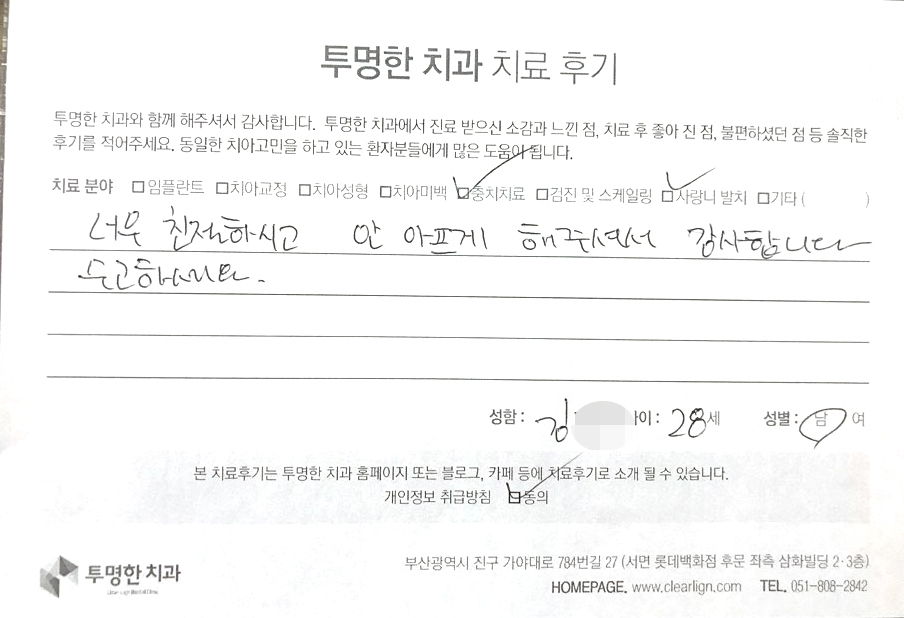 투명한 치과 치료 후기
투명한 치과와 함께 해주셔서 감사합니다. 투명한 치과에서 진료 받으신 소감과 느낀 점, 치료 후 좋아 진 점, 불편하셨던 점 등 솔직한
후기를 적어주세요. 동일한 치아고민을 하고 있는 환자분들에게 많은 도움이 됩니다.
치료 분야 □임플란트 □치아교정 □치아성형 □치아미백 □충치치료 □검진 및 스케일링 □사랑니 발치 □기타 ( )
너무 친절하시고 안 아프게 해주셔서 감사합니다
수고하세요.
성함 : 김 이 : 28세 성별 : 남 여
본 치료후기는 투명한 치과 홈페이지 또는 블로그, 카페 등에 치료후기로 소개 될 수 있습니다.
개인정보 취급방침 □동의
투명한 치과
부산광역시 진구 가야대로 784번길 27 (서면 롯데백화점 후문 좌측 삼화빌딩 2·3층)
HOMEPAGE. www.clearlign.com TEL. 051-808-2842